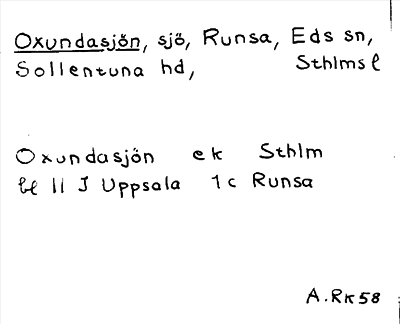 Oxundasjön, sjö, Runsa, Eds sn,
Sollentuna hd, Sthlms l
Oxundasjön ek Sthlm
bl II J Uppsala 1c Runsa
A.RK58